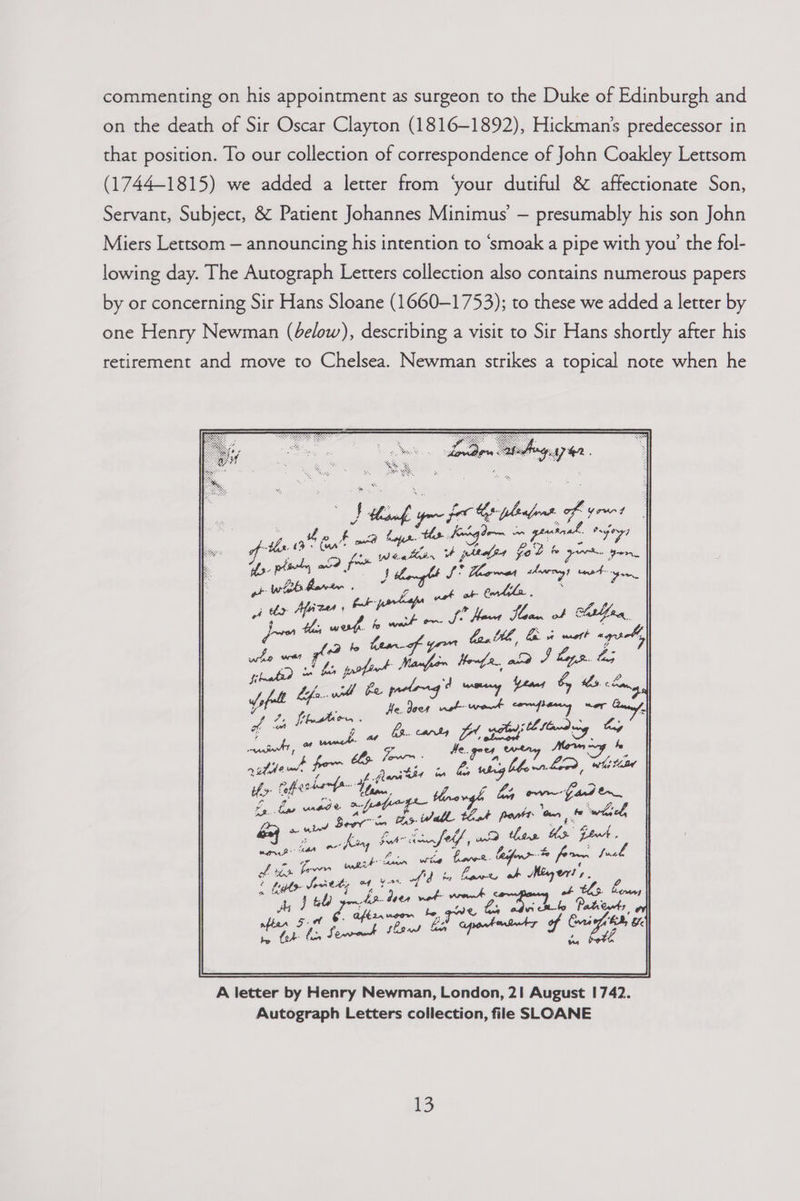 commenting on his appointment as surgeon to the Duke of Edinburgh and
on the death of Sir Oscar Clayton (1816–1892), Hickman's predecessor in
that position. To our collection of correspondence of John Coakley Lettsom
(1744–1815) we added a letter from ‘your dutiful & affectionate Son,
Servant, Subject, & Patient Johannes Minimus’ – presumably his son John
Miers Lettsom – announcing his intention to ‘smoak a pipe with you’ the fol-
lowing day. The Autograph Letters collection also contains numerous papers
by or concerning Sir Hans Sloane (1660–1753); to these we added a letter by
one Henry Newman (below), describing a visit to Sir Hans shortly after his
retirement and move to Chelsea. Newman strikes a topical note when he
London 21 Aug. 1742.
Sir
I thank you for the pleasure of yours
of the and hope the Kingdom in general enjoys
the plenty and fine Weather it pleases God to give you
at Whitehaven. I thought Sr. Thomas
at the Assizes, but perhaps not at Carlisle.
this week to wait on Sr. Hans Sloan at Chelsea
who was glad to hear of your health, he is most agreeably
situated in his present Mansion House, and I hope his
Usefull life will be prolong'd many years by the change
of situation. He does not want company nor
as much as he cares for,
from the Town. He goes every Morning to
the
he has made a through his own Garden
a Door in the Wall that parts 'em, to which
King himself, and there the
of the Town him who have to form such
a Society as you us'd to have at Meyers's.
As I told you he does not want company at the hours
after 5. or 6. afternoon to give his advice to Patients, or
to let his Servant show his apartments of Curiosities &c
in both
A letter by Henry Newman, London, 21 August 1742.
Autograph Letters collection, file SLOANE
13